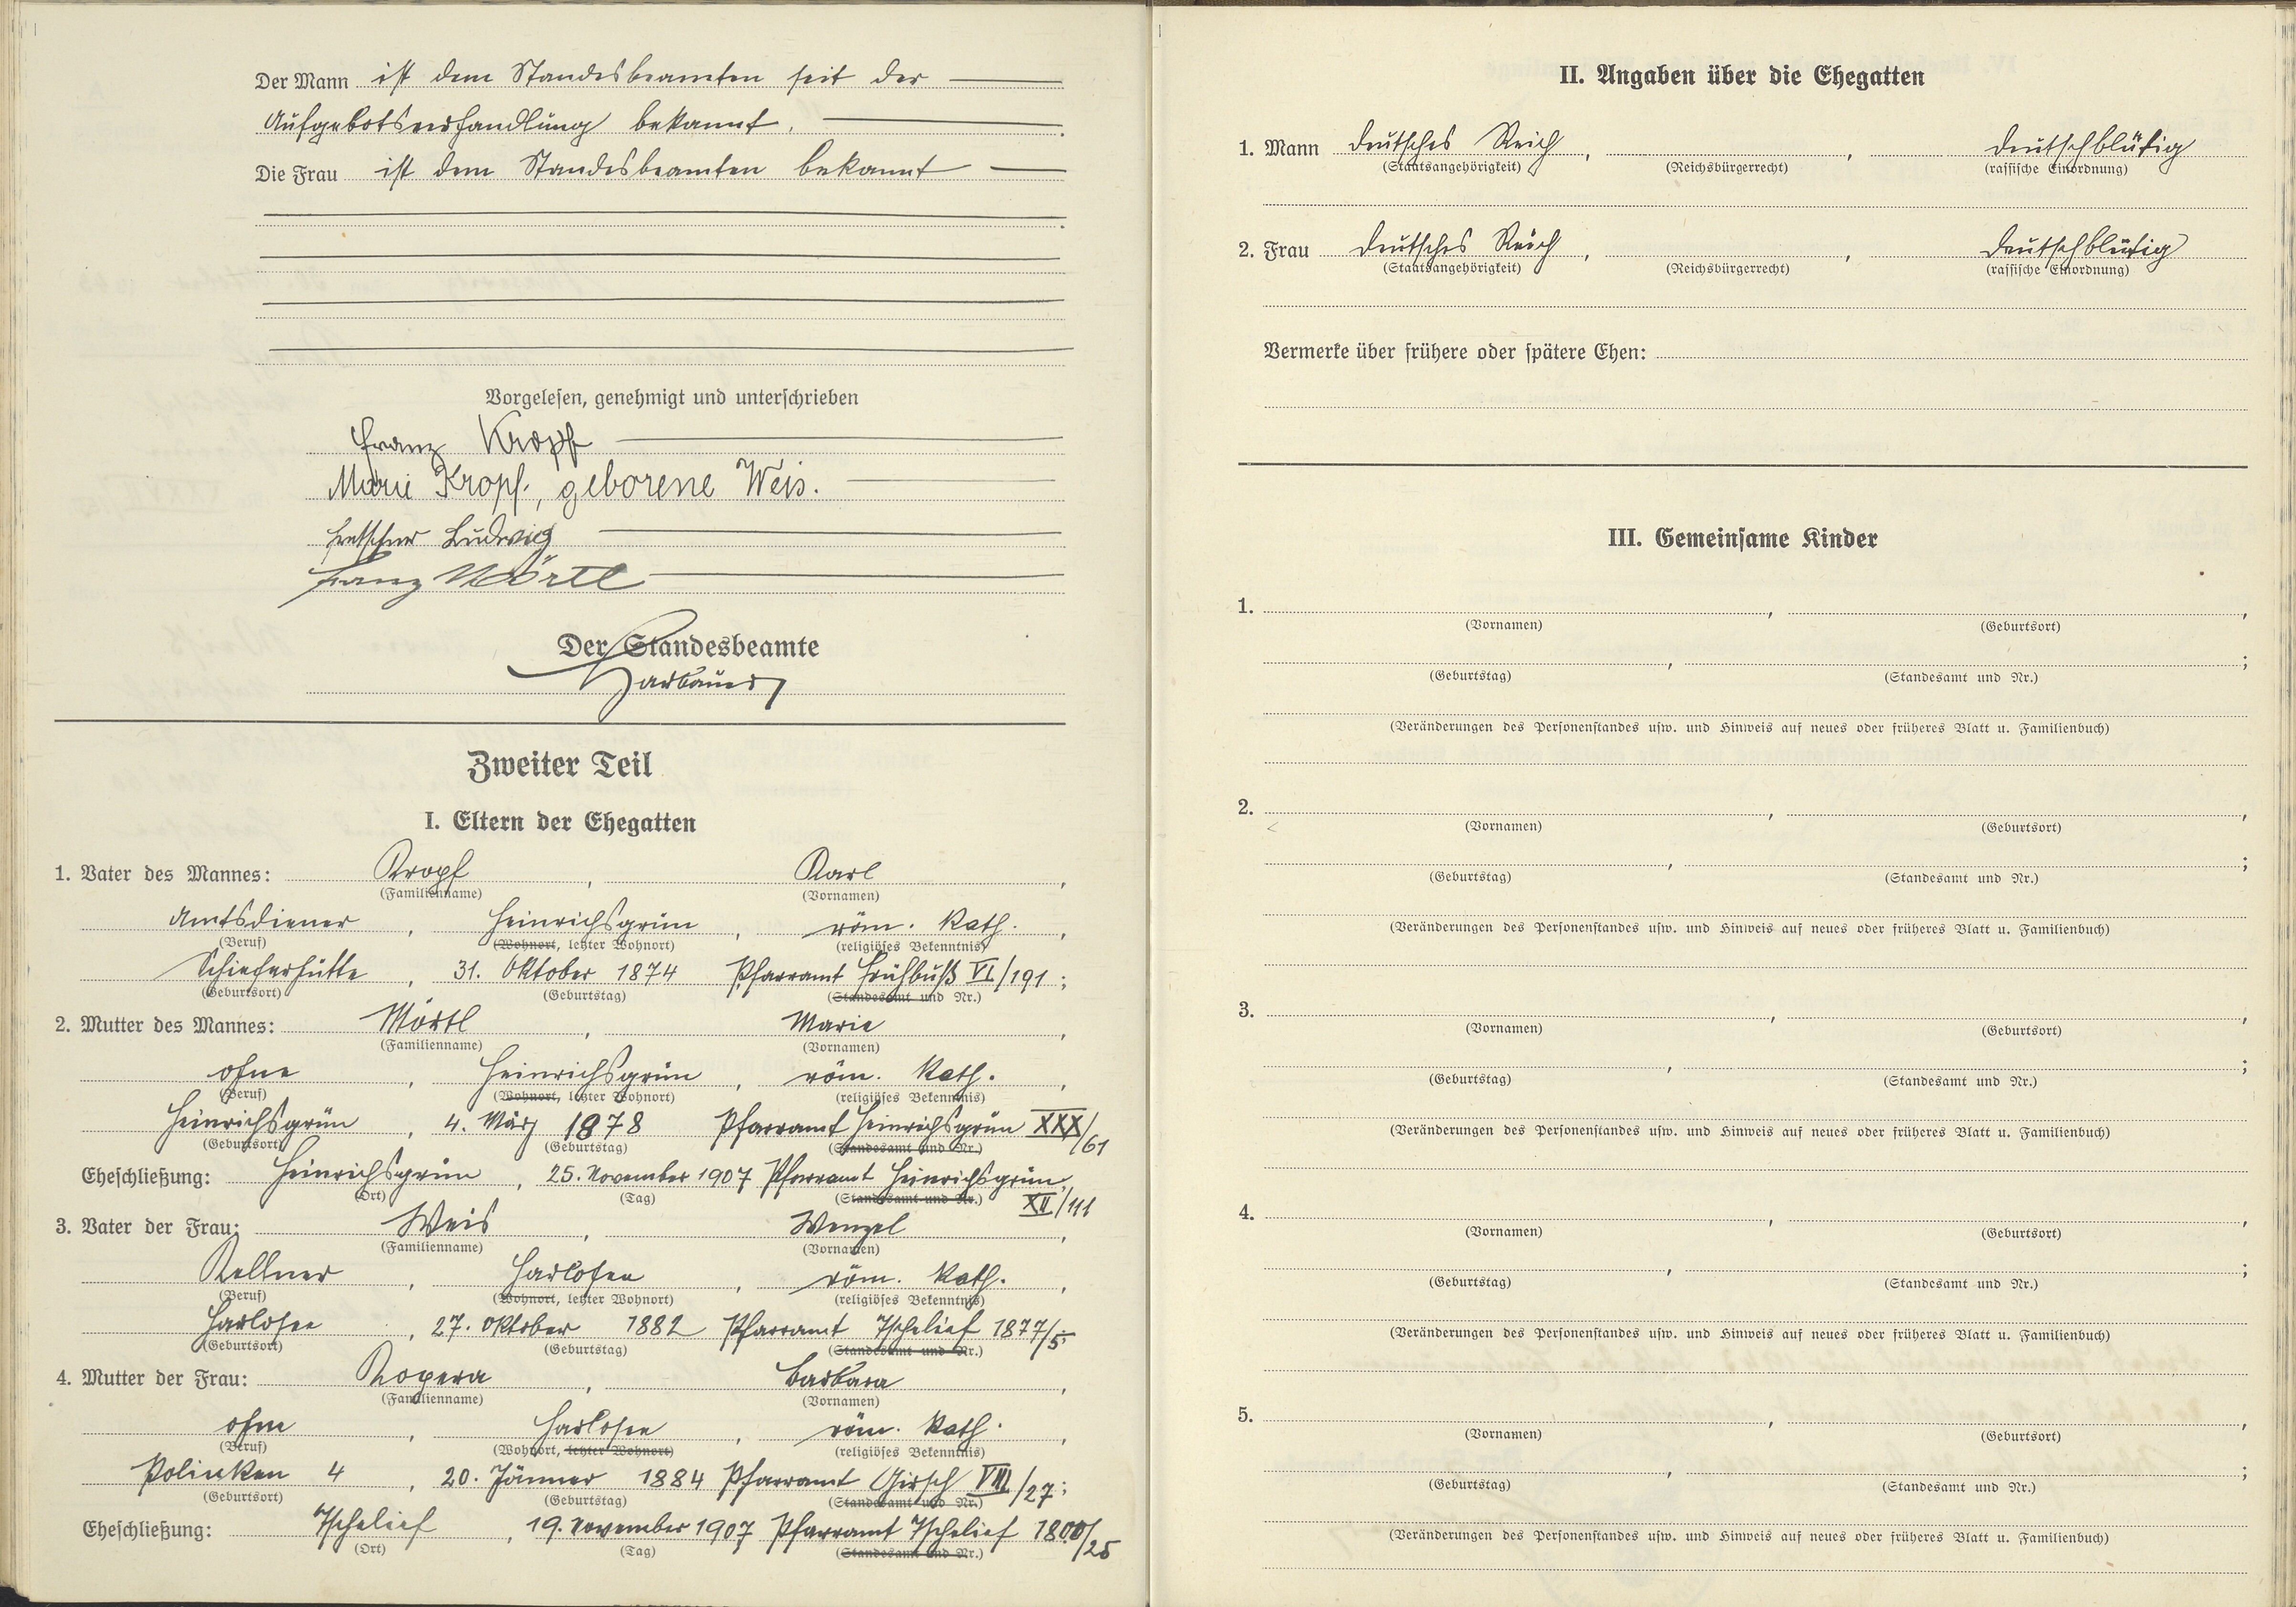 Der Mann ist dem Standesbeamten seit der
Aufgebotsverhandlung bekannt.
Die Frau ist dem Standesbeamten bekannt
Vorgelesen, genehmigt und unterschrieben
Franz Kropf
Marie Kropf, geborene Weis.
Ludwig
Franz Mörtl
Der Standesbeamte
Zweiter Teil
I. Eltern der Ehegatten
1. Vater des Mannes: Kropf, Karl,
(Familienname) (Vornamen)
Amtsdiener, Heinrichsgrün, röm. kath.,
(Beruf) (Wohnort, letzter Wohnort) (religiöses Bekenntnis)
Schieferhütte, 31. Oktober 1874 Pfarramt Frühbuß VI/191;
(Geburtsort) (Geburtstag) (Standesamt und Nr.)
2. Mutter des Mannes: Mörtl, Marie,
(Familienname) (Vornamen)
ohne, Heinrichsgrün, röm. kath.,
(Beruf) (Wohnort, letzter Wohnort) (religiöses Bekenntnis)
Heinrichsgrün, 4. März 1878 Pfarramt Heinrichsgrün XXX/61
(Geburtsort) (Geburtstag) (Standesamt und Nr.)
Eheschließung: Heinrichsgrün, 25. November 1907 Pfarramt Heinrichsgrün,
(Ort) (Tag) (Standesamt und Nr.) XII/111
3. Vater der Frau: Weis, Wenzel,
(Familienname) (Vornamen)
Kellner, Harlosee, röm. kath.,
(Beruf) (Wohnort, letzter Wohnort) (religiöses Bekenntnis)
Harlosee, 27. Oktober 1882 Pfarramt Tschelief 1877/5
(Geburtsort) (Geburtstag) (Standesamt und Nr.)
4. Mutter der Frau: Kopera, Barbara,
(Familienname) (Vornamen)
ohne, Harlosee, röm. kath.,
(Beruf) (Wohnort, letzter Wohnort) (religiöses Bekenntnis)
Polinken 4, 20. Jänner 1884 Pfarramt Girsch VIII/27;
(Geburtsort) (Geburtstag) (Standesamt und Nr.)
Eheschließung: Tschelief, 19. November 1907 Pfarramt Tschelief 1800/25
(Ort) (Tag) (Standesamt und Nr.)
II. Angaben über die Ehegatten
1. Mann deutsches Reich, , deutschblütig
(Staatsangehörigkeit) (Reichsbürgerrecht) (rassische Einordnung)
2. Frau deutsches Reich, , deutschblütig
(Staatsangehörigkeit) (Reichsbürgerrecht) (rassische Einordnung)
Vermerke über frühere oder spätere Ehen:
III. Gemeinsame Kinder
1. , ,
(Vornamen) (Geburtsort)
, ;
(Geburtstag) (Standesamt und Nr.)
(Veränderungen des Personenstandes usw. und Hinweis auf neues oder früheres Blatt u. Familienbuch)
2. , ,
(Vornamen) (Geburtsort)
, ;
(Geburtstag) (Standesamt und Nr.)
(Veränderungen des Personenstandes usw. und Hinweis auf neues oder früheres Blatt u. Familienbuch)
3. , ,
(Vornamen) (Geburtsort)
, ;
(Geburtstag) (Standesamt und Nr.)
(Veränderungen des Personenstandes usw. und Hinweis auf neues oder früheres Blatt u. Familienbuch)
4. , ,
(Vornamen) (Geburtsort)
, ;
(Geburtstag) (Standesamt und Nr.)
(Veränderungen des Personenstandes usw. und Hinweis auf neues oder früheres Blatt u. Familienbuch)
5. , ,
(Vornamen) (Geburtsort)
, ;
(Geburtstag) (Standesamt und Nr.)
(Veränderungen des Personenstandes usw. und Hinweis auf neues oder früheres Blatt u. Familienbuch)